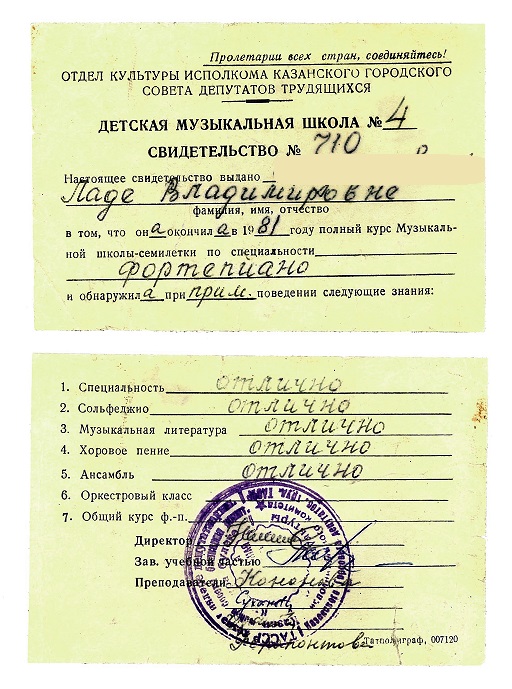 Пролетарии всех стран, соединяйтесь!
ОТДЕЛ КУЛЬТУРЫ ИСПОЛКОМА КАЗАНСКОГО ГОРОДСКОГО
СОВЕТА ДЕПУТАТОВ ТРУДЯЩИХСЯ
ДЕТСКАЯ МУЗЫКАЛЬНАЯ ШКОЛА № 4
СВИДЕТЕЛЬСТВО № 710
Настоящее свидетельство выдано
Ладе Владимировне
фамилия, имя, отчество
в том, что она окончила в 1981 году полный курс Музыкаль-
ной школы-семилетки по специальности
Фортепиано
и обнаружила при прим. поведении следующие знания:
1. Специальность отлично
2. Сольфеджио отлично
3. Музыкальная литература отлично
4. Хоровое пение отлично
5. Ансамбль отлично
6. Оркестровый класс
7. Общий курс ф.-п.
Директор
Зав. учебной частью
Преподаватели
Татполиграф, 007120